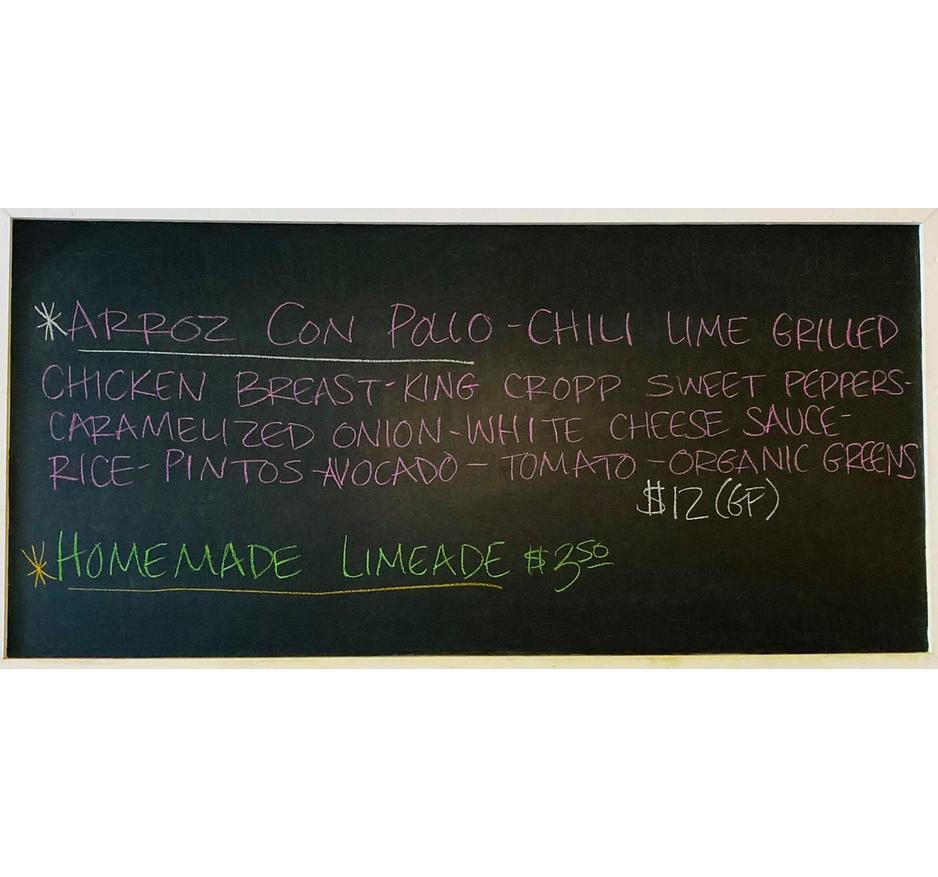 *ARROZ CON POLLO - CHILI LIME GRILLED
CHICKEN BREAST - KING CROPP SWEET PEPPERS -
CARAMELIZED ONION - WHITE CHEESE SAUCE -
RICE - PINTOS - AVOCADO - TOMATO - ORGANIC GREENS
$12 (GF)
*HOMEMADE LIMEADE $3.50